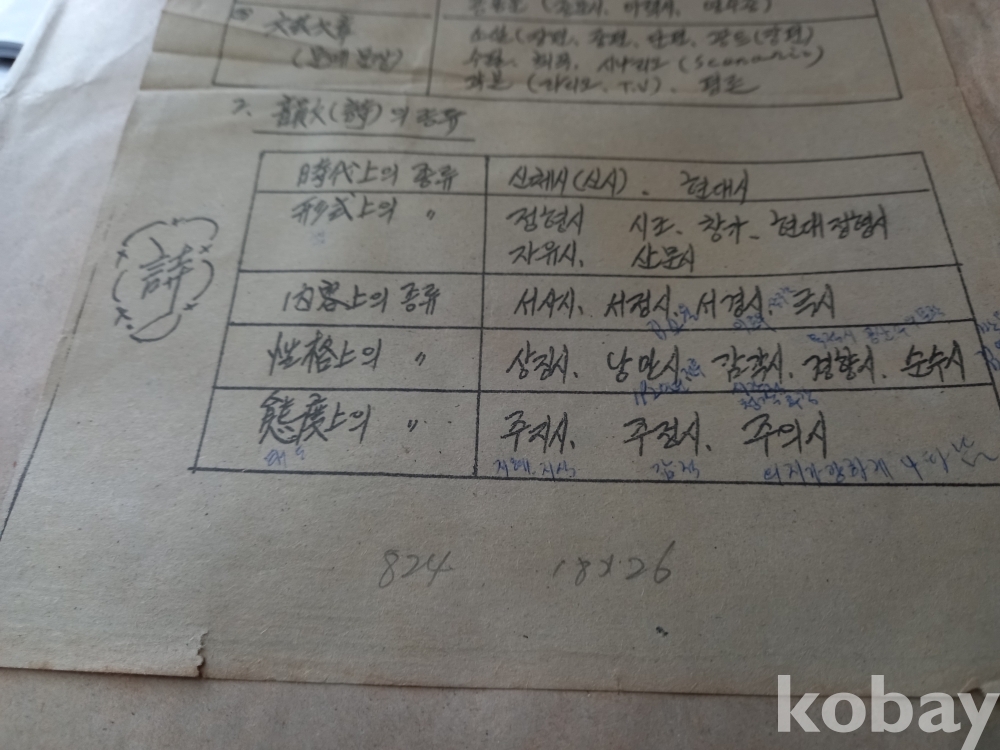 文藝文章 소설(장편, 중편, 단편, 콩트(장편)
(문예문장) 수필, 희곡, 시나리오(Scenario)
각본(라디오, T.V), 평론
7. 韻文(詩)의 종류
詩
時代上의 종류 신체시(신시). 현대시
形式上의 〃 정형시 시조. 창가. 현대정형시
자유시. 산문시
内容上의 종류 서사시. 서정시. 서경시. 극시
性格上의 〃 상징시. 낭만시. 감각시. 경향시. 순수시
態度上의 〃 주지시. 주정시. 주의시
태도 지혜, 지식 감정 의지가 강하게 나타남
824 18×26
kobay